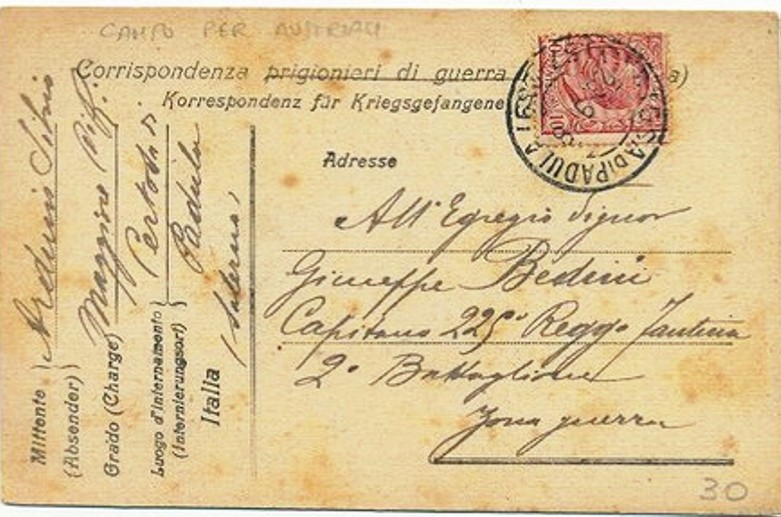 CAMPO PER AUSTRIACI
Corrispondenza prigionieri di guerra a)
Korrespondenz für Kriegsgefangene
Adresse
All'Egregio Signor
Giuseppe Bedini
Capitano 225° Regg° Fanteria
2° Battaglione
Zona guerra
Mittente
(Absender)
Silvio
Grado (Charge) Maggiore
Luogo d'internamento
(Internierungsort)
Certosa di
Padula
Italia (Salerno)
DI PADULA
10
30